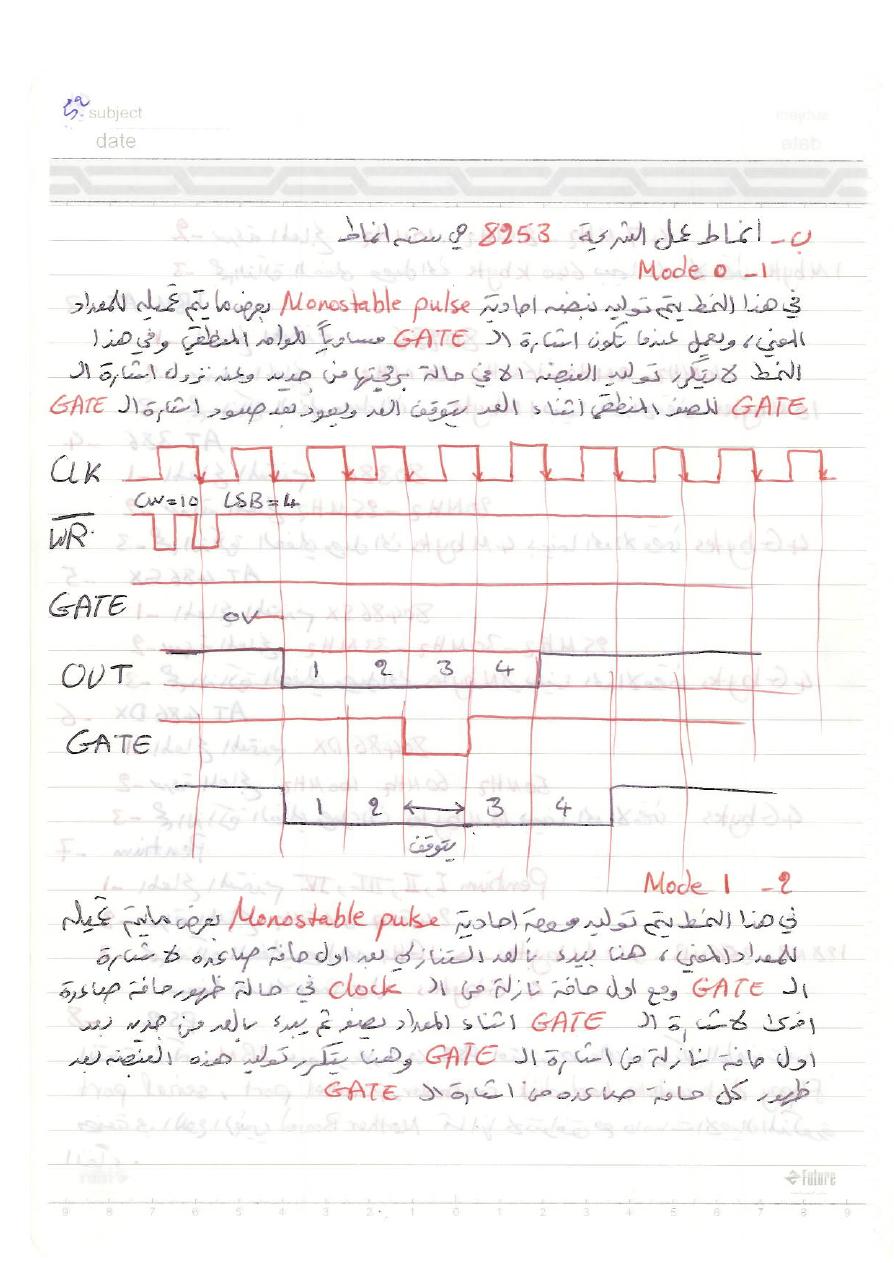 subject
date
ب- انماط عمل الشريحة 8253 هي سته انماط
1- Mode 0
في هذا النمط يتم توليد نبضه احادية Monostable pulse بعرض ما يتم تحميله للعداد
المعني، ويعمل عندما تكون اشارة الـ GATE مساوياً للواحد المنطقي وفي هذا
النمط لا يتكرر توليد النبضه الا في حالة برمجتها من جديد وعند نزول اشارة الـ
GATE للصفر المنطقي اثناء العد يتوقف العد ويعود بعد صعود اشارة الـ GATE
CLK
CW=10 LSB=4
WR
GATE
0V
OUT 1 2 3 4
GATE
1 2 3 4
يتوقف
2- Mode 1
في هذا النمط يتم توليد احادية Monostable pulse بعرض مايتم تحميله
للعداد المعني، هنا يبدء بالعد التنازلي بعد اول حافة صاعده لاشارة
الـ GATE ومع اول حافة نازلة من الـ clock في حالة ظهور حافة صاعدة
اخرى لاشارة الـ GATE اثناء العداد يصفر ثم يبدء بالعد من جديد بعد
اول حافة نازلة من اشارة الـ GATE وهنا يتكرر توليد هذه النبضه بعد
ظهور كل حافة صاعده من اشارة الـ GATE
Future
9 8 7 6 5 4 3 2 1 0 1 2 3 4 5 6 7 8 9